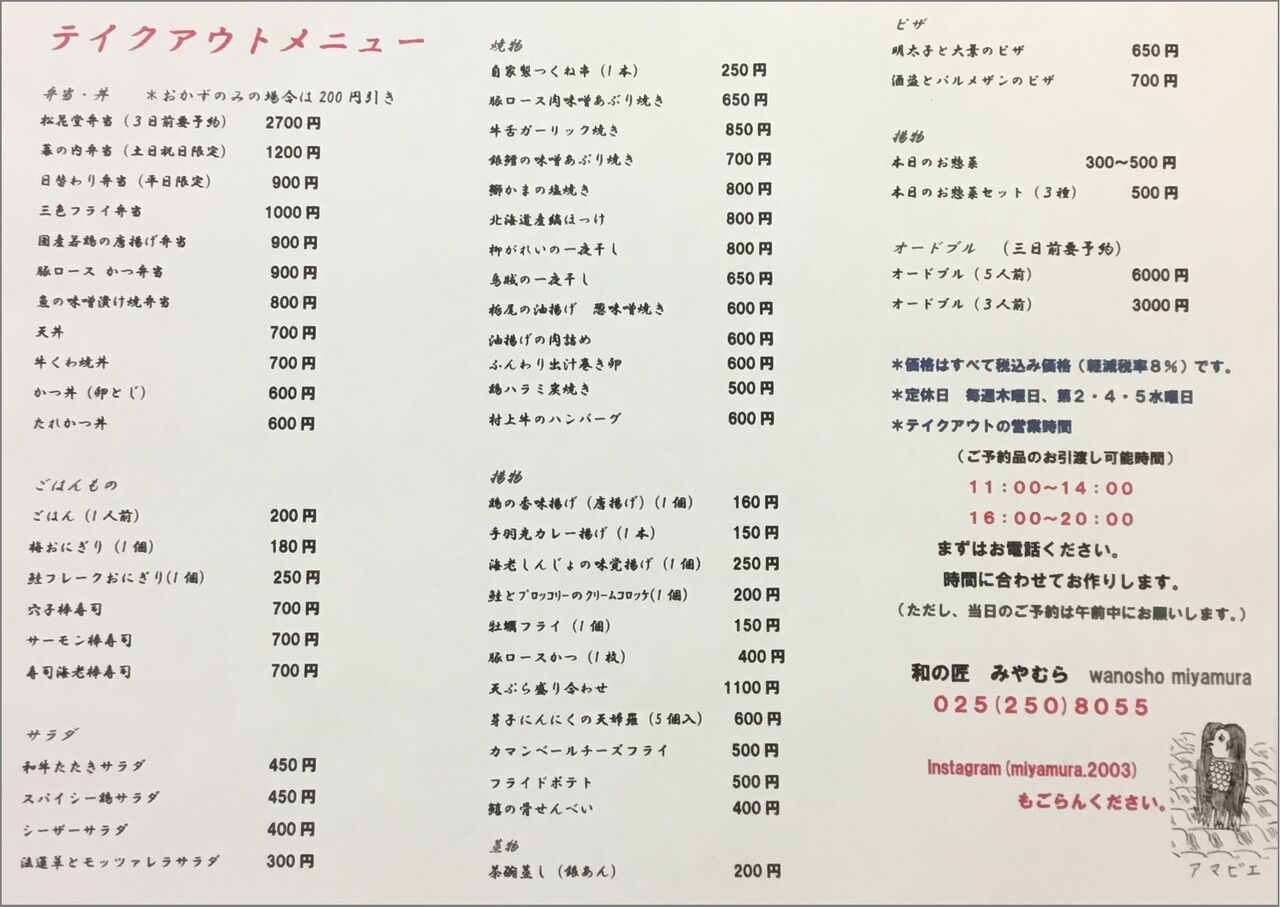 テイクアウトメニュー
弁当・丼　＊おかずのみの場合は200円引き
松花堂弁当（3日前要予約） 2700円
幕の内弁当（土日祝日限定） 1200円
日替わり弁当（平日限定） 900円
三色フライ弁当 1000円
国産若鶏の唐揚げ弁当 900円
豚ロース かつ弁当 900円
魚の味噌漬け焼弁当 800円
天丼 700円
牛くわ焼丼 700円
かつ丼（卵とじ） 600円
たれかつ丼 600円
ごはんもの
ごはん（1人前） 200円
梅おにぎり（1個） 180円
鮭フレークおにぎり(1個） 250円
穴子棒寿司 700円
サーモン棒寿司 700円
寿司海老棒寿司 700円
サラダ
和牛たたきサラダ 450円
スパイシー鶏サラダ 450円
シーザーサラダ 400円
法蓮草とモッツァレラサラダ 300円
焼物
自家製つくね串（1本） 250円
豚ロース肉味噌あぶり焼き 650円
牛舌ガーリック焼き 850円
銀鱈の味噌あぶり焼き 700円
鰤かまの塩焼き 800円
北海道産縞ほっけ 800円
柳がれいの一夜干し 800円
烏賊の一夜干し 650円
栃尾の油揚げ　葱味噌焼き 600円
油揚げの肉詰め 600円
ふんわり出汁巻き卵 600円
鶏ハラミ炭焼き 500円
村上牛のハンバーグ 600円
揚物
鶏の香味揚げ（唐揚げ）（1個） 160円
手羽先カレー揚げ（1本） 150円
海老しんじょの味覚揚げ（1個） 250円
鮭とブロッコリーのクリームコロッケ(1個） 200円
牡蠣フライ（1個） 150円
豚ロースかつ（1枚） 400円
天ぷら盛り合わせ 1100円
芽子にんにくの天婦羅（5個入） 600円
カマンベールチーズフライ 500円
フライドポテト 500円
鱚の骨せんべい 400円
蒸物
茶碗蒸し（銀あん） 200円
ピザ
明太子と大葉のピザ 650円
酒盗とパルメザンのピザ 700円
揚物
本日のお惣菜 300～500円
本日のお惣菜セット（3種） 500円
オードブル　（三日前要予約）
オードブル（5人前） 6000円
オードブル（3人前） 3000円
＊価格はすべて税込み価格（軽減税率８％）です。
＊定休日　毎週木曜日、第２・４・５水曜日
＊テイクアウトの営業時間
（ご予約品のお引渡し可能時間）
１１：００～１４：００
１６：００～２０：００
まずはお電話ください。
時間に合わせてお作りします。
（ただし、当日のご予約は午前中にお願いします。）
和の匠　みやむら　wanosho miyamura
０２５（２５０）８０５５
Instagram (miyamura.2003)
もごらんください。
アマビエ